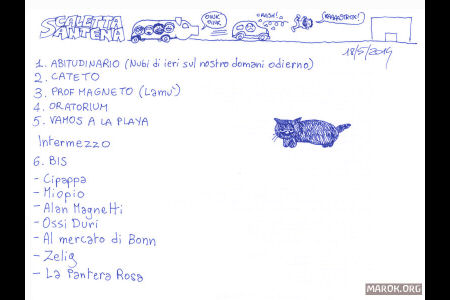 SCALETTA
SANTENA
OINK OINK
CRASH!
BARASTROK!
18/5/2019
1. ABITUDINARIO (Nubi di ieri sul nostro domani odierno)
2. CATETO
3. PROF MAGNETO (Lamù)
4. ORATORIUM
5. VAMOS A LA PLAYA
Intermezzo
6. BIS
- Cipappa
- Miopio
- Alan Magnetti
- Ossi Duri
- Al mercato di Bonn
- Zelig
- La Pantera Rosa
MAROK.ORG